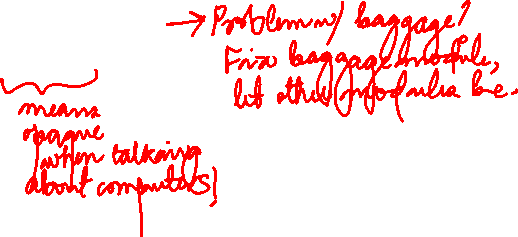 → Problem w/ baggage?
Fix baggage module,
let other modules be.
means
opaque
when talking
about computers!